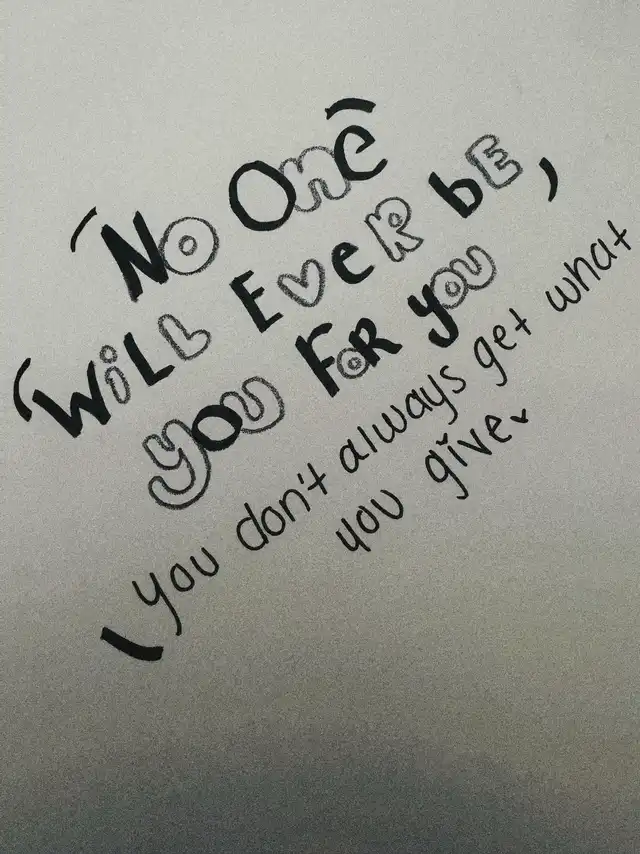 No One
Will Ever be,
you For you
you don't always get what
you give.